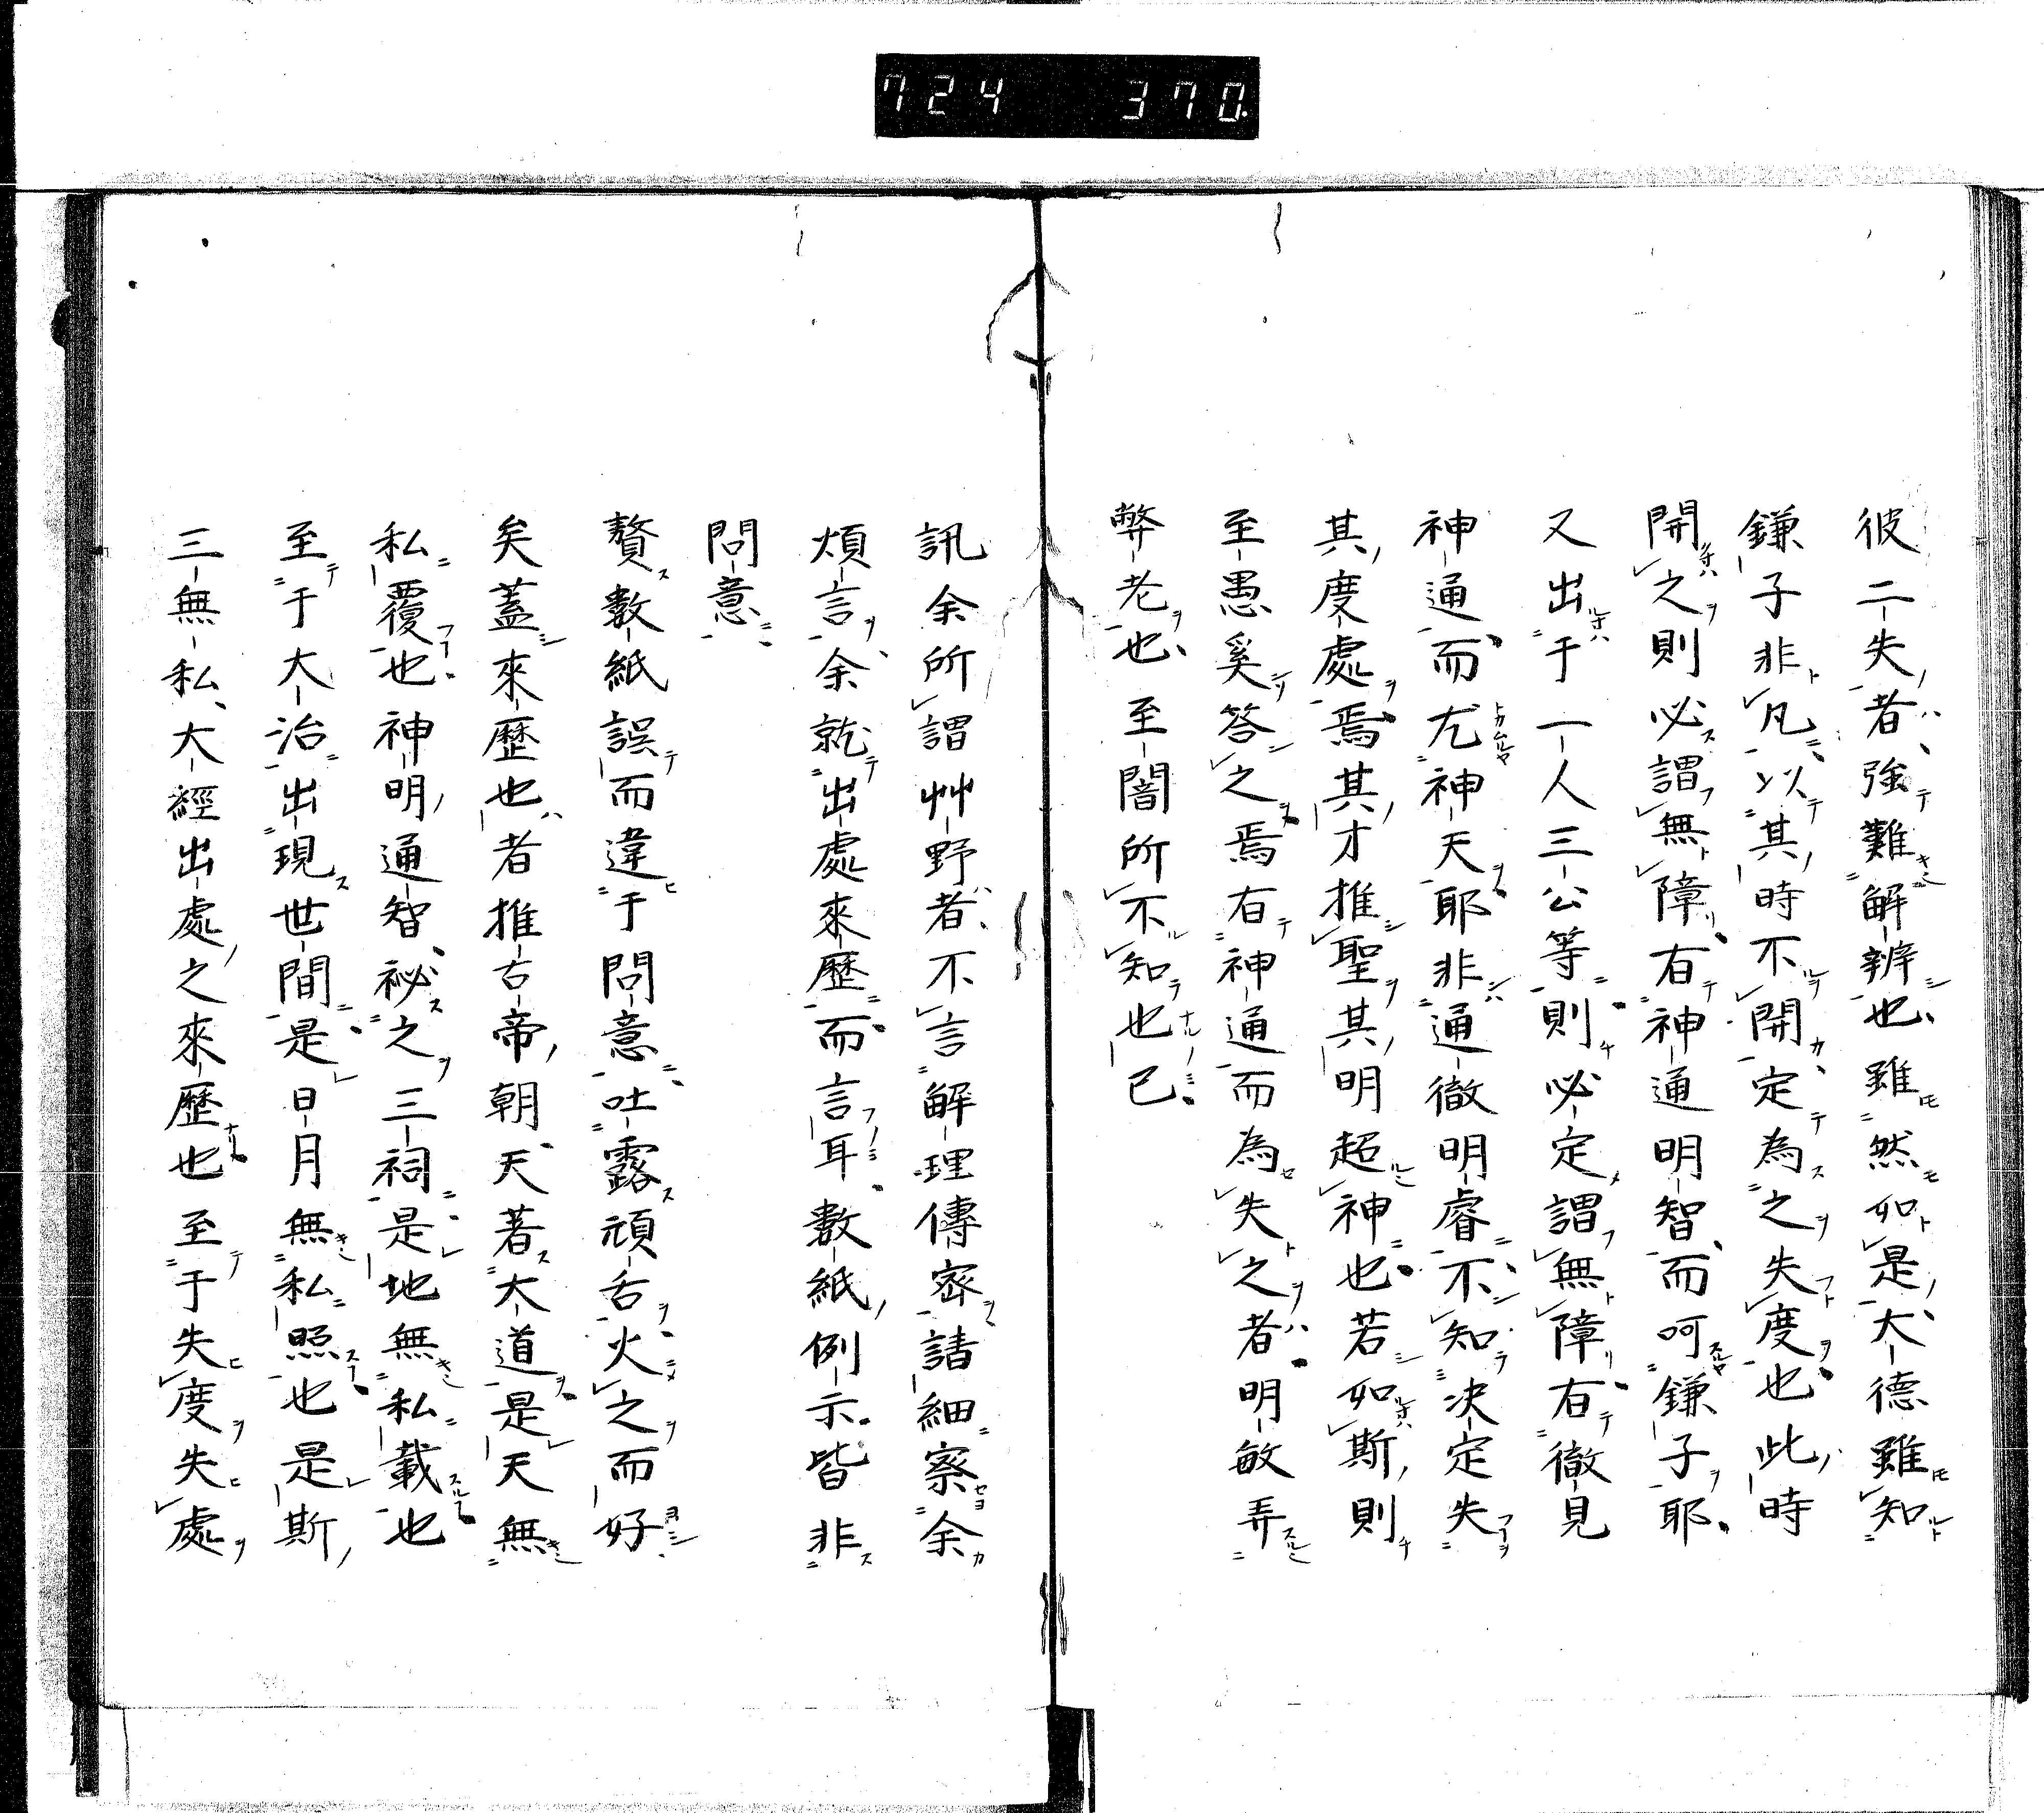 724 370
彼二失者強難解辨也雖然如是大德雖知
鎌子非凡以其時不開定為之失度也此時
開之則必謂無障有神通明智而呵鎌子耶
又出于一人三公等則必定謂無障右徹見
神通而尤神天耶非通徹明睿不知決定失
其度處焉其才推聖其明超神也若如斯則
至愚奚答之焉右神通而為失之者明敏弄
弊老也至闇所不知也已
訊余所謂艸野者不言解理傳密請細察余
煩言余就出處來歷而言耳數紙例示皆非
問意
贅數紙誤而違于問意吐露頑舌火之而好
矣蓋來歷也者推古帝朝天著大道是天無
私覆也神明通智祕之三祠是地無私載也
至于大治出現世間是日月無私照也是斯
三無私大經出處之來歷也至于失度失處